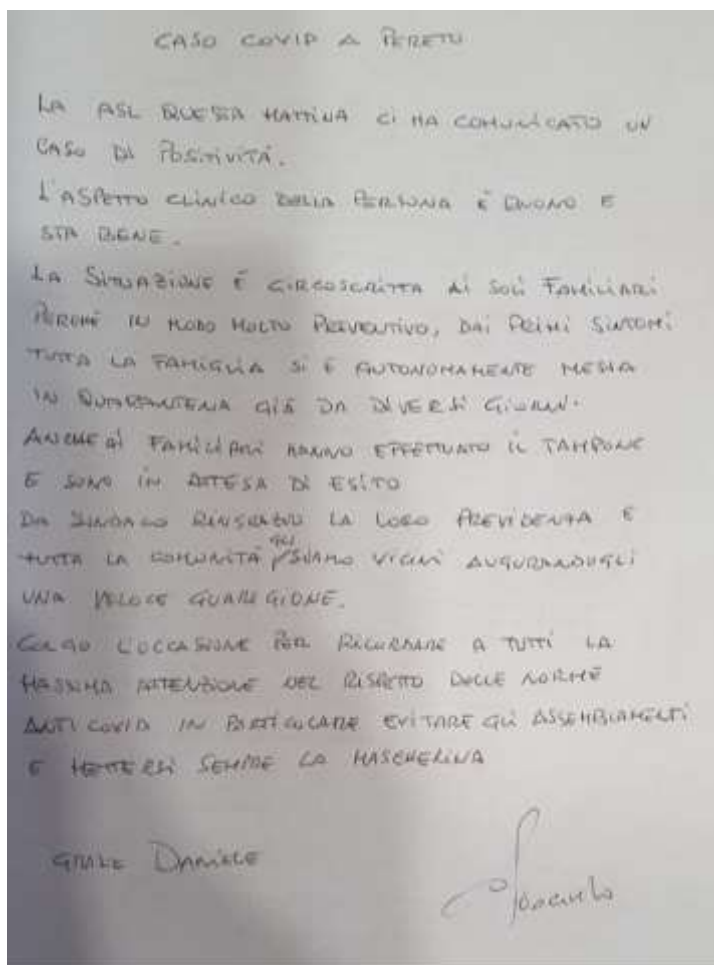 CASO COVID A PERETO
LA ASL QUESTA MATTINA CI HA COMUNICATO UN
CASO DI POSITIVITÀ.
L'ASPETTO CLINICO DELLA PERSONA È BUONO E
STA BENE.
LA SITUAZIONE È CIRCOSCRITTA AI SOLI FAMILIARI
PERCHÉ IN MODO MOLTO PREVENTIVO, DAI PRIMI SINTOMI
TUTTA LA FAMIGLIA SI È AUTONOMAMENTE MESSA
IN QUARANTENA GIÀ DA DIVERSI GIORNI.
ANCHE AI FAMILIARI HANNO EFFETTUATO IL TAMPONE
E SONO IN ATTESA DI ESITO
DA SINDACO RINGRAZIO LA LORO PREVIDENZA E
TUTTA LA COMUNITÀ GLI SIAMO VICINI AUGURANDOGLI
UNA VELOCE GUARIGIONE.
COLGO L'OCCASIONE PER RICORDARE A TUTTI LA
MASSIMA ATTENZIONE NEL RISPETTO DELLE NORME
ANTI COVID IN PARTICOLARE EVITARE GLI ASSEMBLAMENTI
E METTERSI SEMPRE LA MASCHERINA
DANIELE